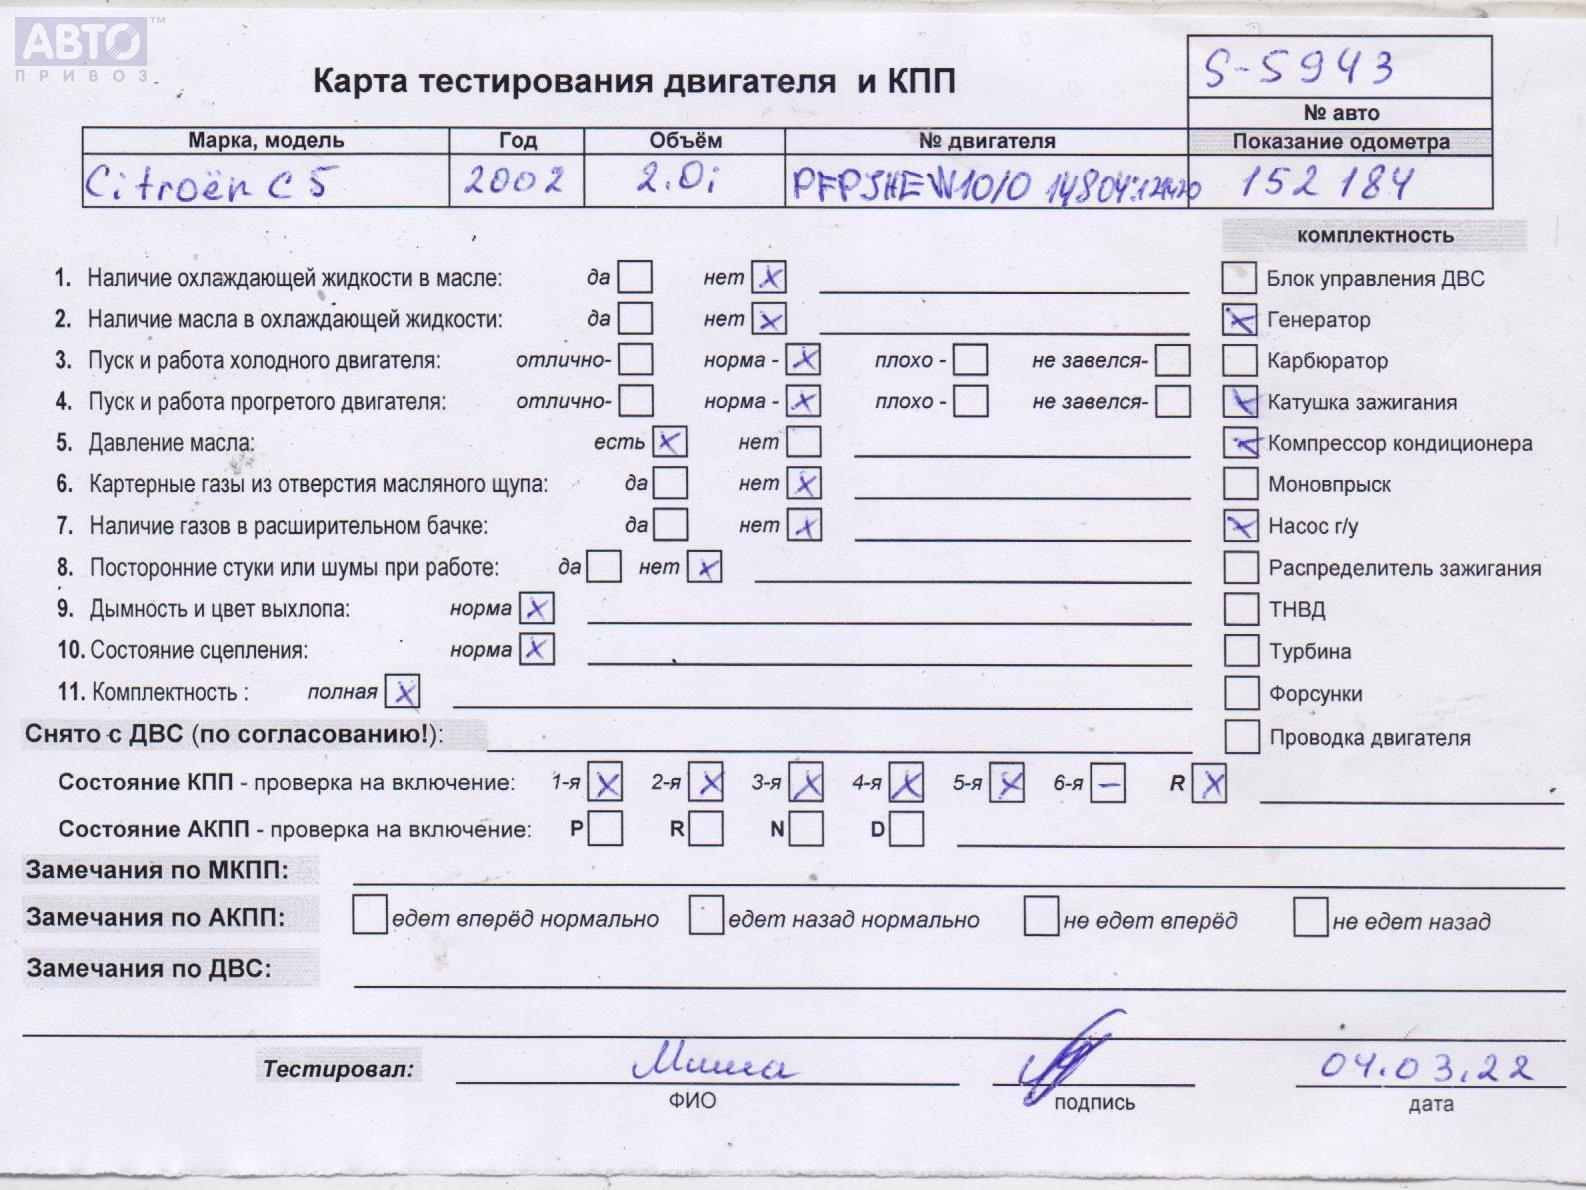 АВТО™
ПРИВОЗ
Карта тестирования двигателя и КПП
S-5943
№ авто
Марка, модель Год Объём № двигателя Показание одометра
Citroën C5 2002 2.0i 152 184
комплектность
1. Наличие охлаждающей жидкости в масле: да нет x Блок управления ДВС
2. Наличие масла в охлаждающей жидкости: да нет x x Генератор
3. Пуск и работа холодного двигателя: отлично- норма - x плохо - не завелся- Карбюратор
4. Пуск и работа прогретого двигателя: отлично- норма - x плохо - не завелся- x Катушка зажигания
5. Давление масла: есть x нет x Компрессор кондиционера
6. Картерные газы из отверстия масляного щупа: да нет x Моновпрыск
7. Наличие газов в расширительном бачке: да нет x x Насос г/у
8. Посторонние стуки или шумы при работе: да нет x Распределитель зажигания
9. Дымность и цвет выхлопа: норма x ТНВД
10. Состояние сцепления: норма x Турбина
11. Комплектность : полная x Форсунки
Снято с ДВС (по согласованию!): Проводка двигателя
Состояние КПП - проверка на включение: 1-я x 2-я x 3-я x 4-я x 5-я x 6-я – R x
Состояние АКПП - проверка на включение: P R N D
Замечания по МКПП:
Замечания по АКПП: едет вперёд нормально едет назад нормально не едет вперёд не едет назад
Замечания по ДВС:
Тестировал: Миша 04.03.22
ФИО подпись дата